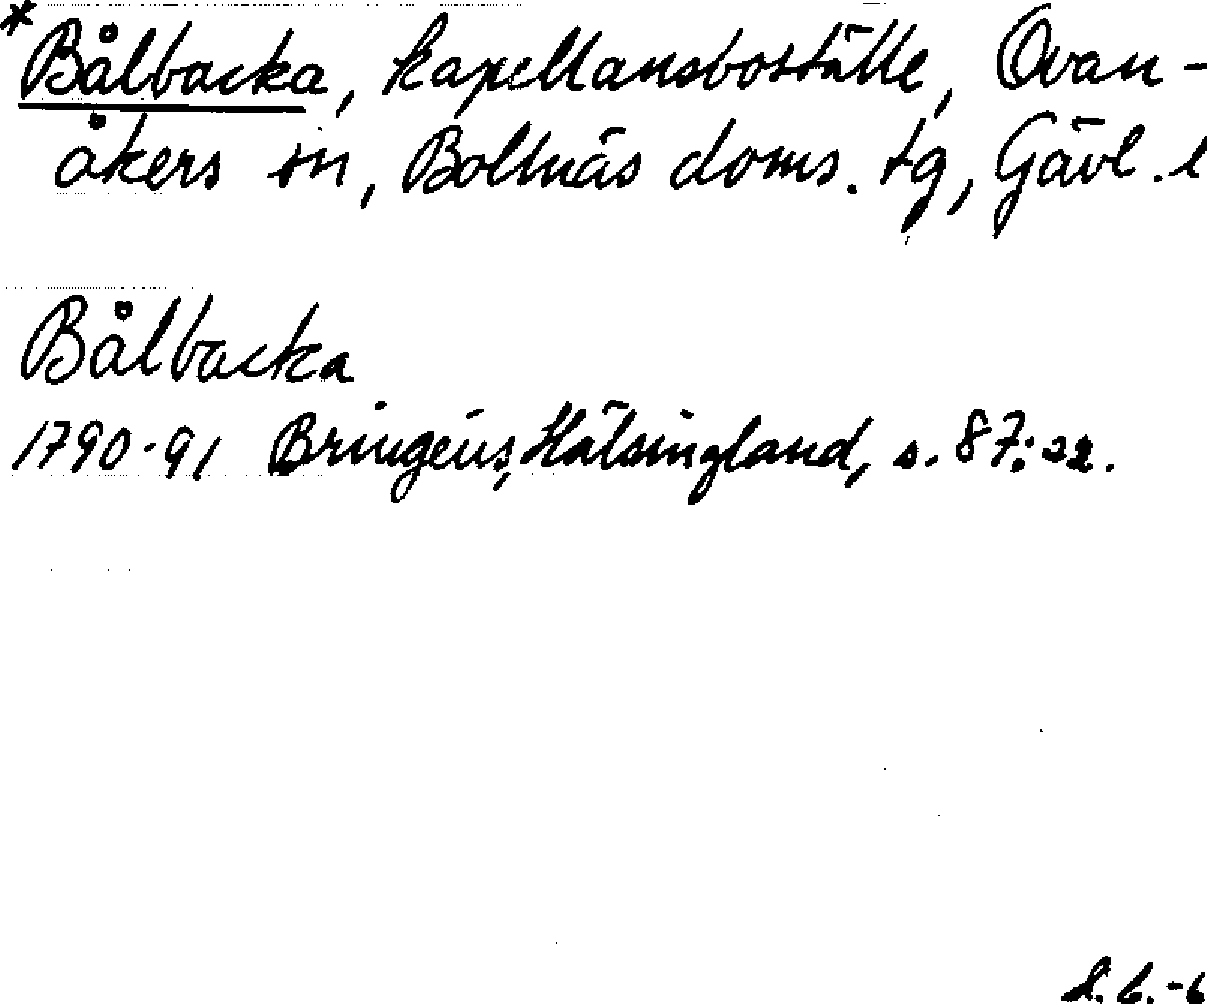 * Bålbacka, kapellansboställe, Ovan-
åkers sn, Bollnäs doms. tg, Gävl. l
Bålbacka
1790-91 Bringéus, Hälsingland, s. 87:22.